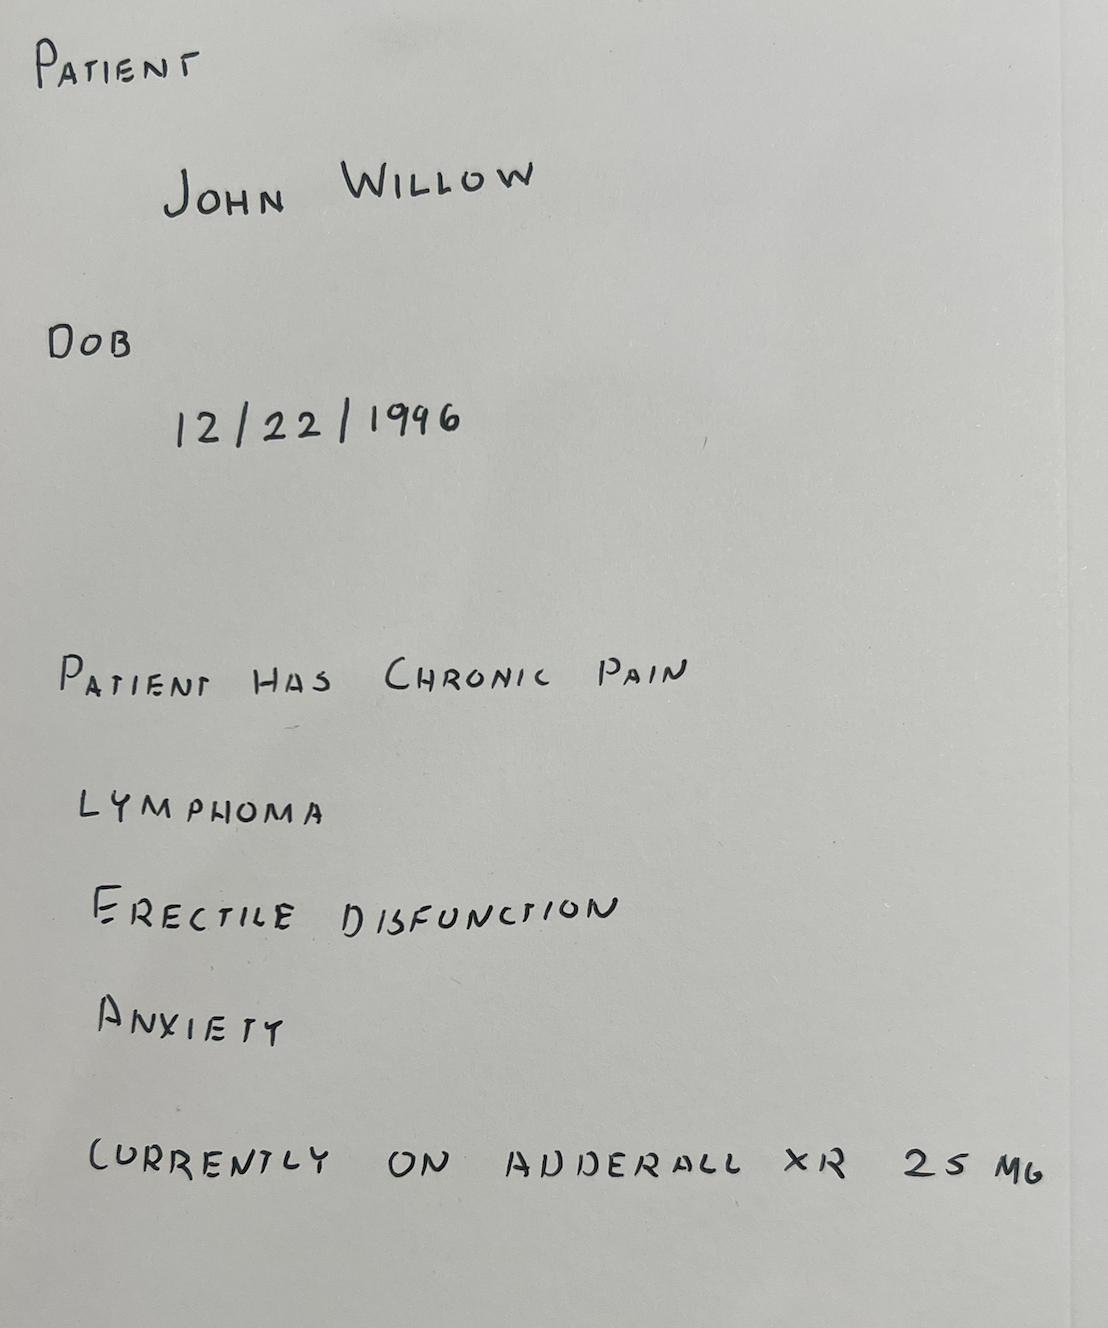 PATIENT
JOHN WILLOW
DOB
12/22/1996
PATIENT HAS CHRONIC PAIN
LYMPHOMA
ERECTILE DISFUNCTION
ANXIETY
CURRENTLY ON ADDERALL XR 25 MG